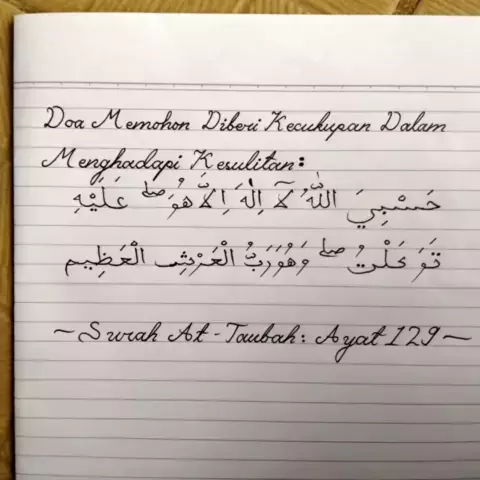 Doa Memohon Diberi Kecukupan Dalam
Menghadapi Kesulitan:
حَسْبِيَ اللّٰهُ لَآ اِلٰهَ اِلَّا هُوَ ۖ عَلَيْهِ
تَوَكَّلْتُ ۖ وَهُوَ رَبُّ الْعَرْشِ الْعَظِيْمِ
~ Surah At - Taubah : Ayat 129 ~